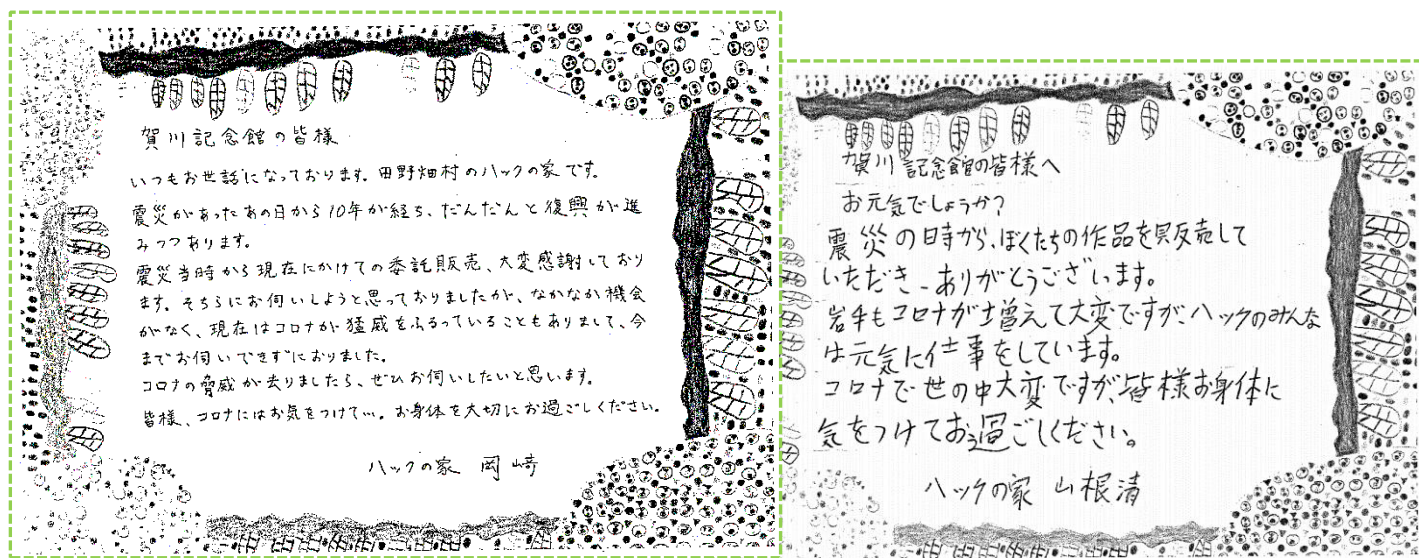 賀川記念館の皆様
いつもお世話になっております。田野畑村のハックの家です。
震災があったあの日から10年が経ち、だんだんと復興が進
みつつあります。
震災当時から現在にかけての委託販売、大変感謝しており
ます。そちらにお伺いしようと思っておりましたが、なかなか機会
がなく、現在はコロナが猛威をふるっていることもありまして、今
までお伺いできずにおりました。
コロナの脅威が去りましたら、ぜひお伺いしたいと思います。
皆様、コロナにはお気をつけて…。お身体を大切にお過ごしください。
ハックの家 岡崎
賀川記念館の皆様へ
お元気でしょうか？
震災の時から、ぼくたちの作品を販売して
いただき、ありがとうございます。
岩手もコロナが増えて大変ですが、ハックのみんな
は元気に仕事をしています。
コロナで世の中大変ですが、皆様お身体に
気をつけてお過ごしください。
ハックの家 山根清